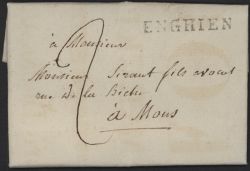 ENGHIEN
à Monsieur
Monsieur Siraut fils avocat
rue de la Biche
à Mons
2